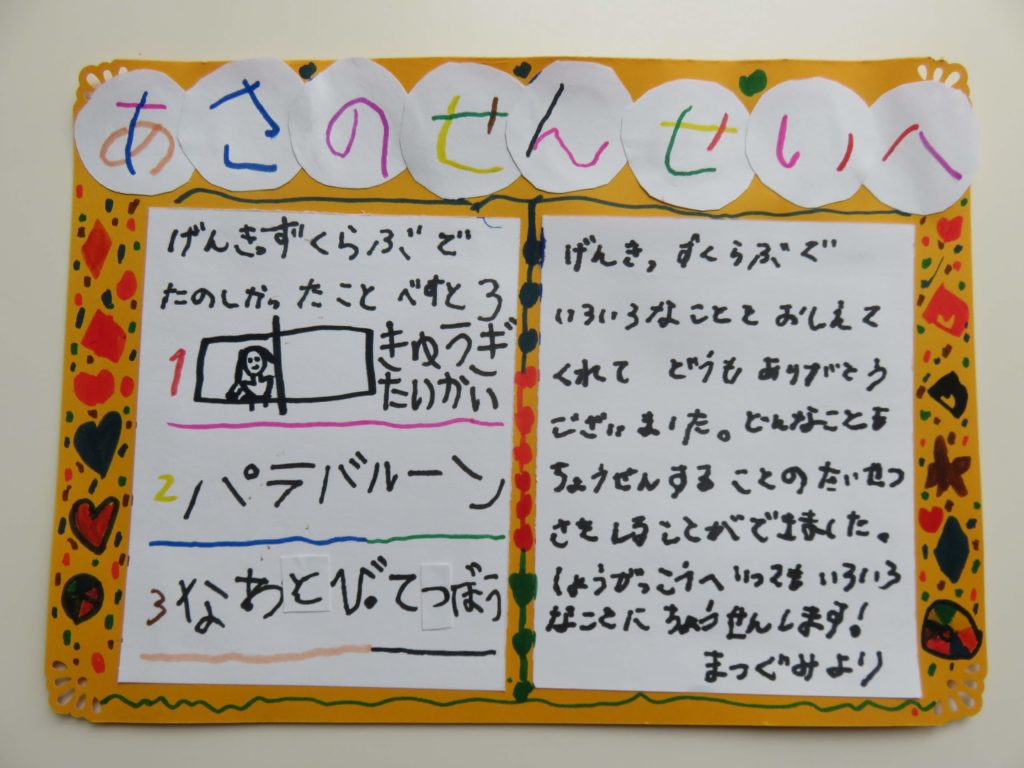 あさのせんせいへ
げんきっずくらぶで
たのしかったこと べすと3
1 きゅうぎ
たいかい
2 パラバルーン
3 なわとび・てつぼう
げんきっずくらぶで
いろいろなことを おしえて
くれて どうも ありがとう
ございました。どんなことも
ちょうせんする ことの たいせつ
さを しることが できました。
しょうがっこうへ いっても いろいろ
なことに ちょうせんします!
まつぐみより